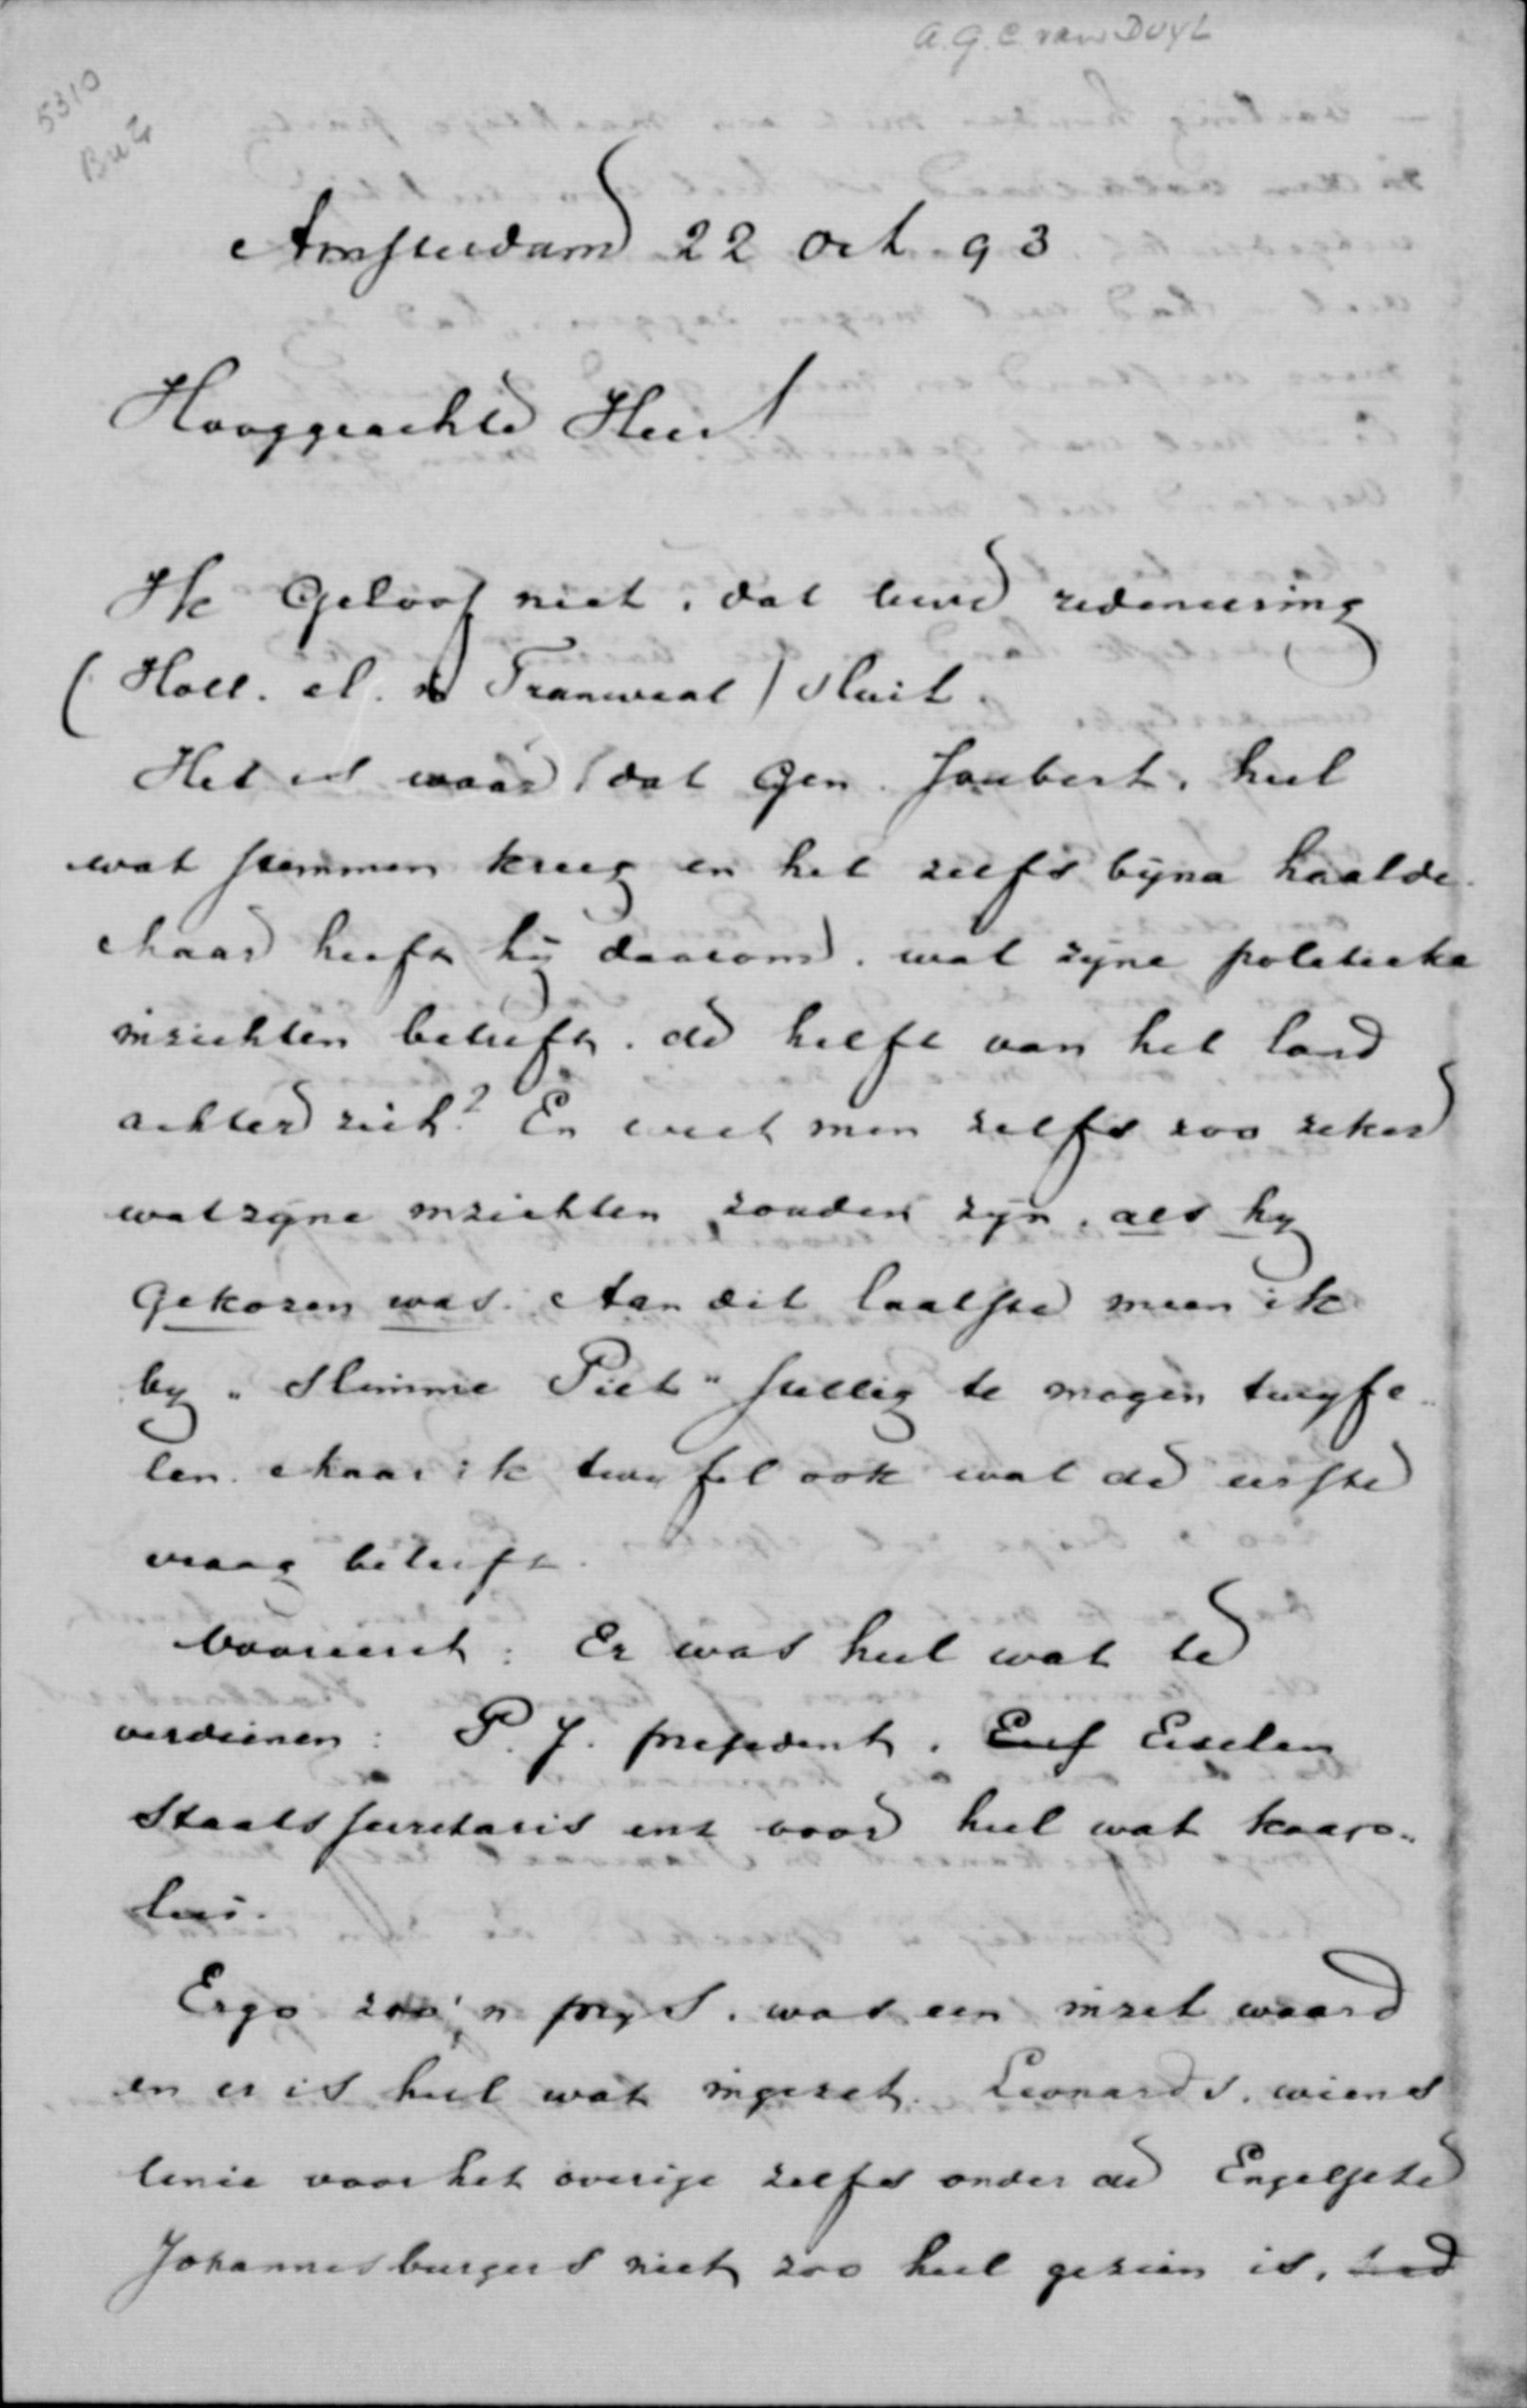 A.G.C. van Duyl
5310
Amsterdam 22 Oct. 93
Hooggeachte Heer!
Ik geloof niet, dat uwe redeneering
(Holl. el. in Transvaal) sluit.
Het is waar dat Gen. Joubert, heel
wat stemmen kreeg en het zelfs byna haalde.
Maar heeft hij daarom, wat zyne politieke
inzichten betreft, de helft van het land
achter zich? En weet men zelfs zoo zeker
wat zyne inzichten zouden zyn, als hy
gekozen was. Aan dit laatste meen ik
by „Slimme Piet" stellig te mogen twyfe-
len. Maar ik twyfel ook wat de eerste
vraag betreft.
Vooreerst: Er was heel wat te
verdienen: P. J. president, Eiselen
Staatssecretaris enz voor heel wat
Ergo zoo'n prys, was een inzet waard
en er is heel wat ingezet. Leonards, wiens
linie voor het overige zelfs onder de Engelsche
Johannesburgers niet zoo heel gezien is, had